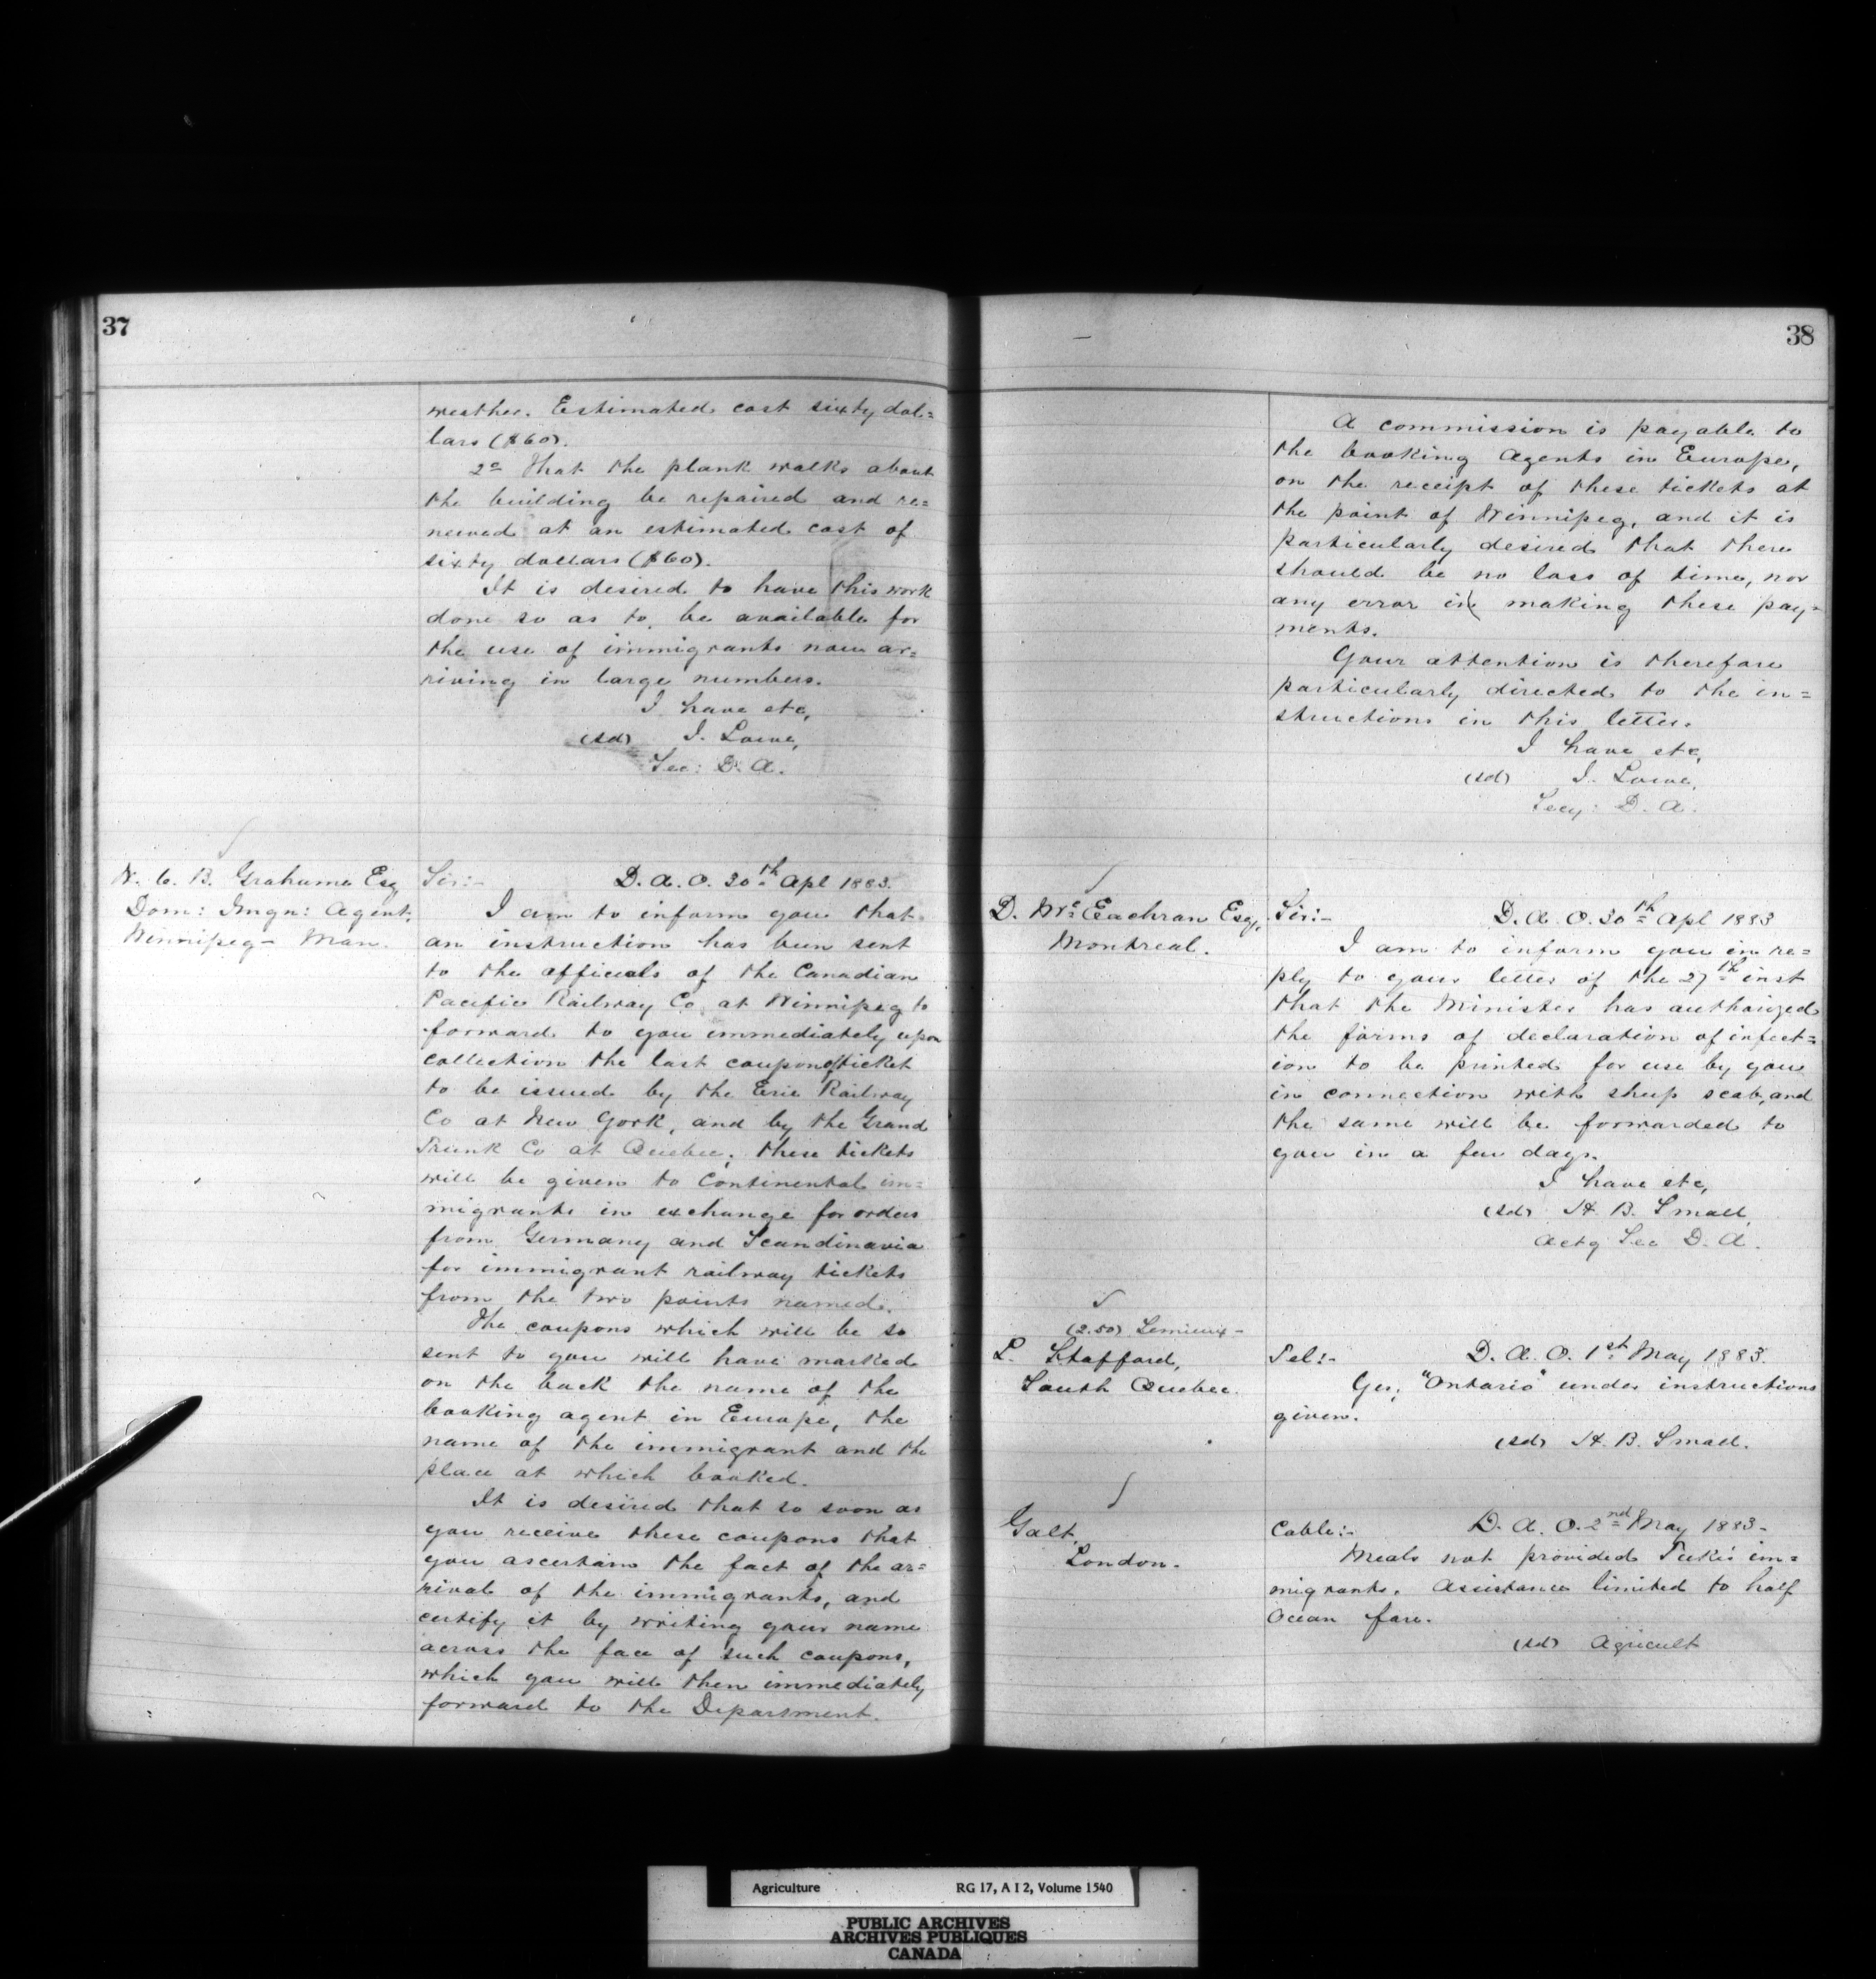 37
weather. Estimated cost sixty dol=
lars ($60).
2º That the plank walks about
the building be repaired and re=
newed at an estimated cost of
sixty dollars ($60).
It is desired to have this work
done so as to be available for
the use of immigrants now ar=
riving in large numbers.
I have etc,
(sd) J. Lowe,
Sec: D. A.
W. C. B. Grahame Esq
Dom: Imgn: Agent,
Winnipeg - Man.
Sir:- D. A. O. 30th Apl 1883.
I am to inform you that
an instruction has been sent
to the officials of the Canadian
Pacific Railway Co at Winnipeg to
forward to you immediately upon
collection the last coupon of ticket
to be issued by the Erie Railway
Co at New York, and by the Grand
Trunk Co at Quebec; these tickets
will be given to Continental im=
migrants in exchange for orders
from Germany and Scandinavia
for immigrant railway tickets
from the two points named.
The coupons which will be so
sent to you will have marked
on the back the name of the
booking agent in Europe, the
name of the immigrant and the
place at which booked.
It is desired that so soon as
you receive these coupons that
you ascertain the fact of the ar=
rival of the immigrants, and
certify it by writing your name
across the face of such coupons,
which you will then immediately
forward to the Department.
38
A commission is payable to
the booking Agents in Europe,
on the receipt of these tickets at
the point of Winnipeg, and it is
particularly desired that there
should be no loss of time, nor
any error in making these pay=
ments.
Your attention is therefore
particularly directed to the in=
structions in this letter.
I have etc,
(sd) J. Lowe,
Secy: D. A.
D. McEachran Esq,
Montreal.
Sir:- D. A. O. 30th Apl 1883
I am to inform you in re=
ply to your letter of the 27th inst
that the Minister has authorized
the forms of declaration of infect=
ion to be printed for use by you
in connection with sheep scab, and
the same will be forwarded to
you in a few days.
I have etc,
(sd) H. B. Small,
Actg Sec D. A.
(2.50) Lemieux -
L. Stafford,
South Quebec.
Tel:- D. A. O. 1st May 1883.
Yes, "Ontario" under instructions
given.
(sd) H. B. Small.
Galt,
London.
Cable:- D. A. O. 2nd May 1883-
Meals not provided Tuke's im=
migrants. Assistance limited to half
Ocean fare.
(sd) Agricult
Agriculture RG 17, A I 2, Volume 1540
PUBLIC ARCHIVES
ARCHIVES PUBLIQUES
CANADA